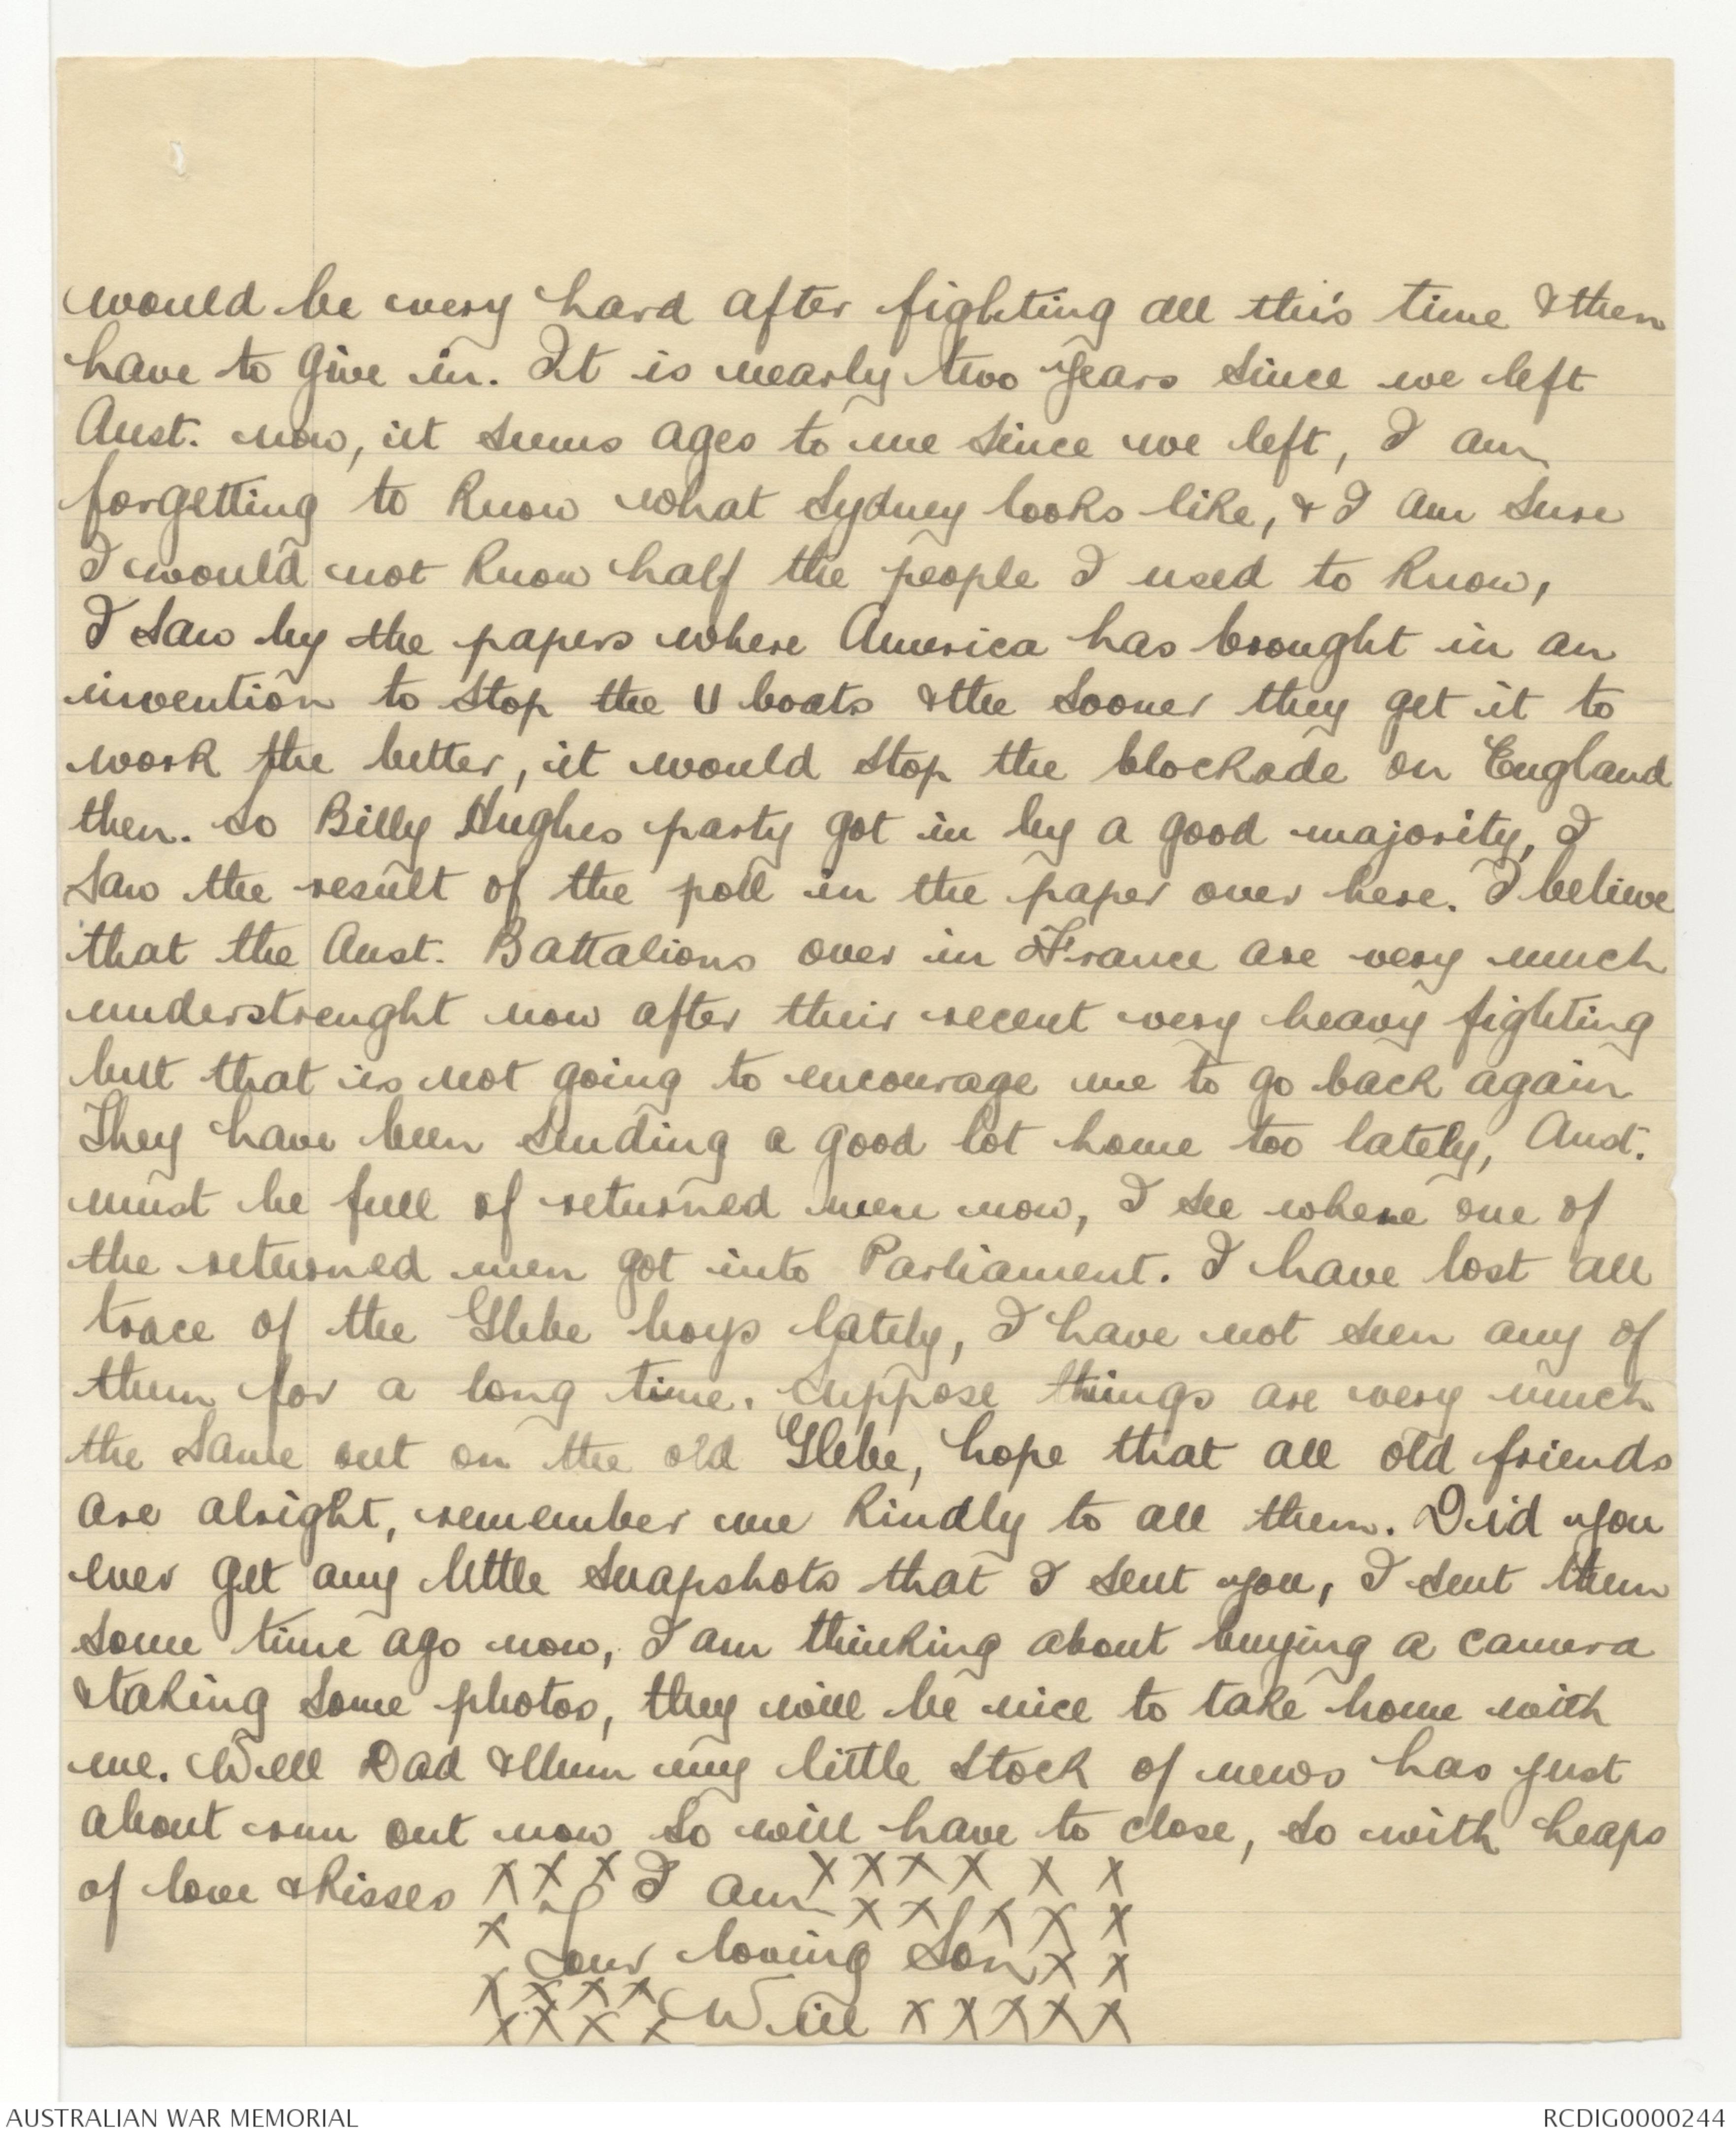 would be very hard after fighting all this time & then
have to give in. It is nearly two years since we left
Aust. now, it seems ages to me since we left, I am
forgetting to know what Sydney looks like, & I am sure
I would not know half the people I used to know,
I saw by the papers where America has brought in an
invention to stop the U boats & the sooner they get it to
work the better, it would stop the blockade on England
then. So Billy Hughes party got in by a good majority, I
saw the result of the poll in the paper over here. I believe
that the Aust. Battalions over in France are very much
understrenght now after their recent very heavy fighting
but that is not going to encourage me to go back again
They have been sending a good lot home too lately, Aust.
must be full of returned men now, I see where one of
the returned men got into Parliament. I have lost all
trace of the Glebe boys lately, I have not seen any of
them for a long time. Suppose things are very much
the same out on the old Glebe, hope that all old friends
are alright, remember me kindly to all them. Did you
ever get any little snapshots that I sent you, I sent them
some time ago now, I am thinking about buying a camera
& taking some photos, they will be nice to take home with
me. Well Dad & Mum my little stock of news has just
about run out now so will have to close, so with heaps
of love & kisses X X X I am X X X X X X
X X X X X X
Your loving Son X X
X X X X X Will X X X X X
X X X X
AUSTRALIAN WAR MEMORIAL
RCDIG0000244